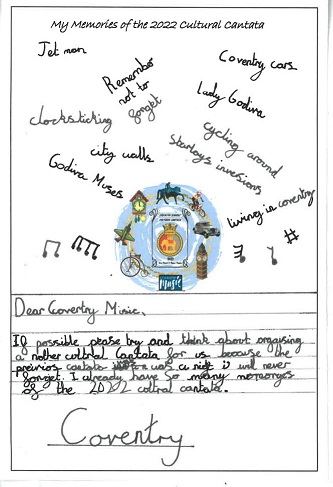 My Memories of the 2022 Cultural Cantata
Jet man
Coventry cars
Remember
not to
forget
Lady Godiva
clocksticking
cycling around
Starleys invensions
city walls
Godiva Muses
living in coventry
Music
Dear Coventry Music,
If possible please try and think about organising
a nother cultral Cantata for us because the
previos cantata was a night i will never
forget. I already have so many
of the 2022 coltral cantata.
Coventry